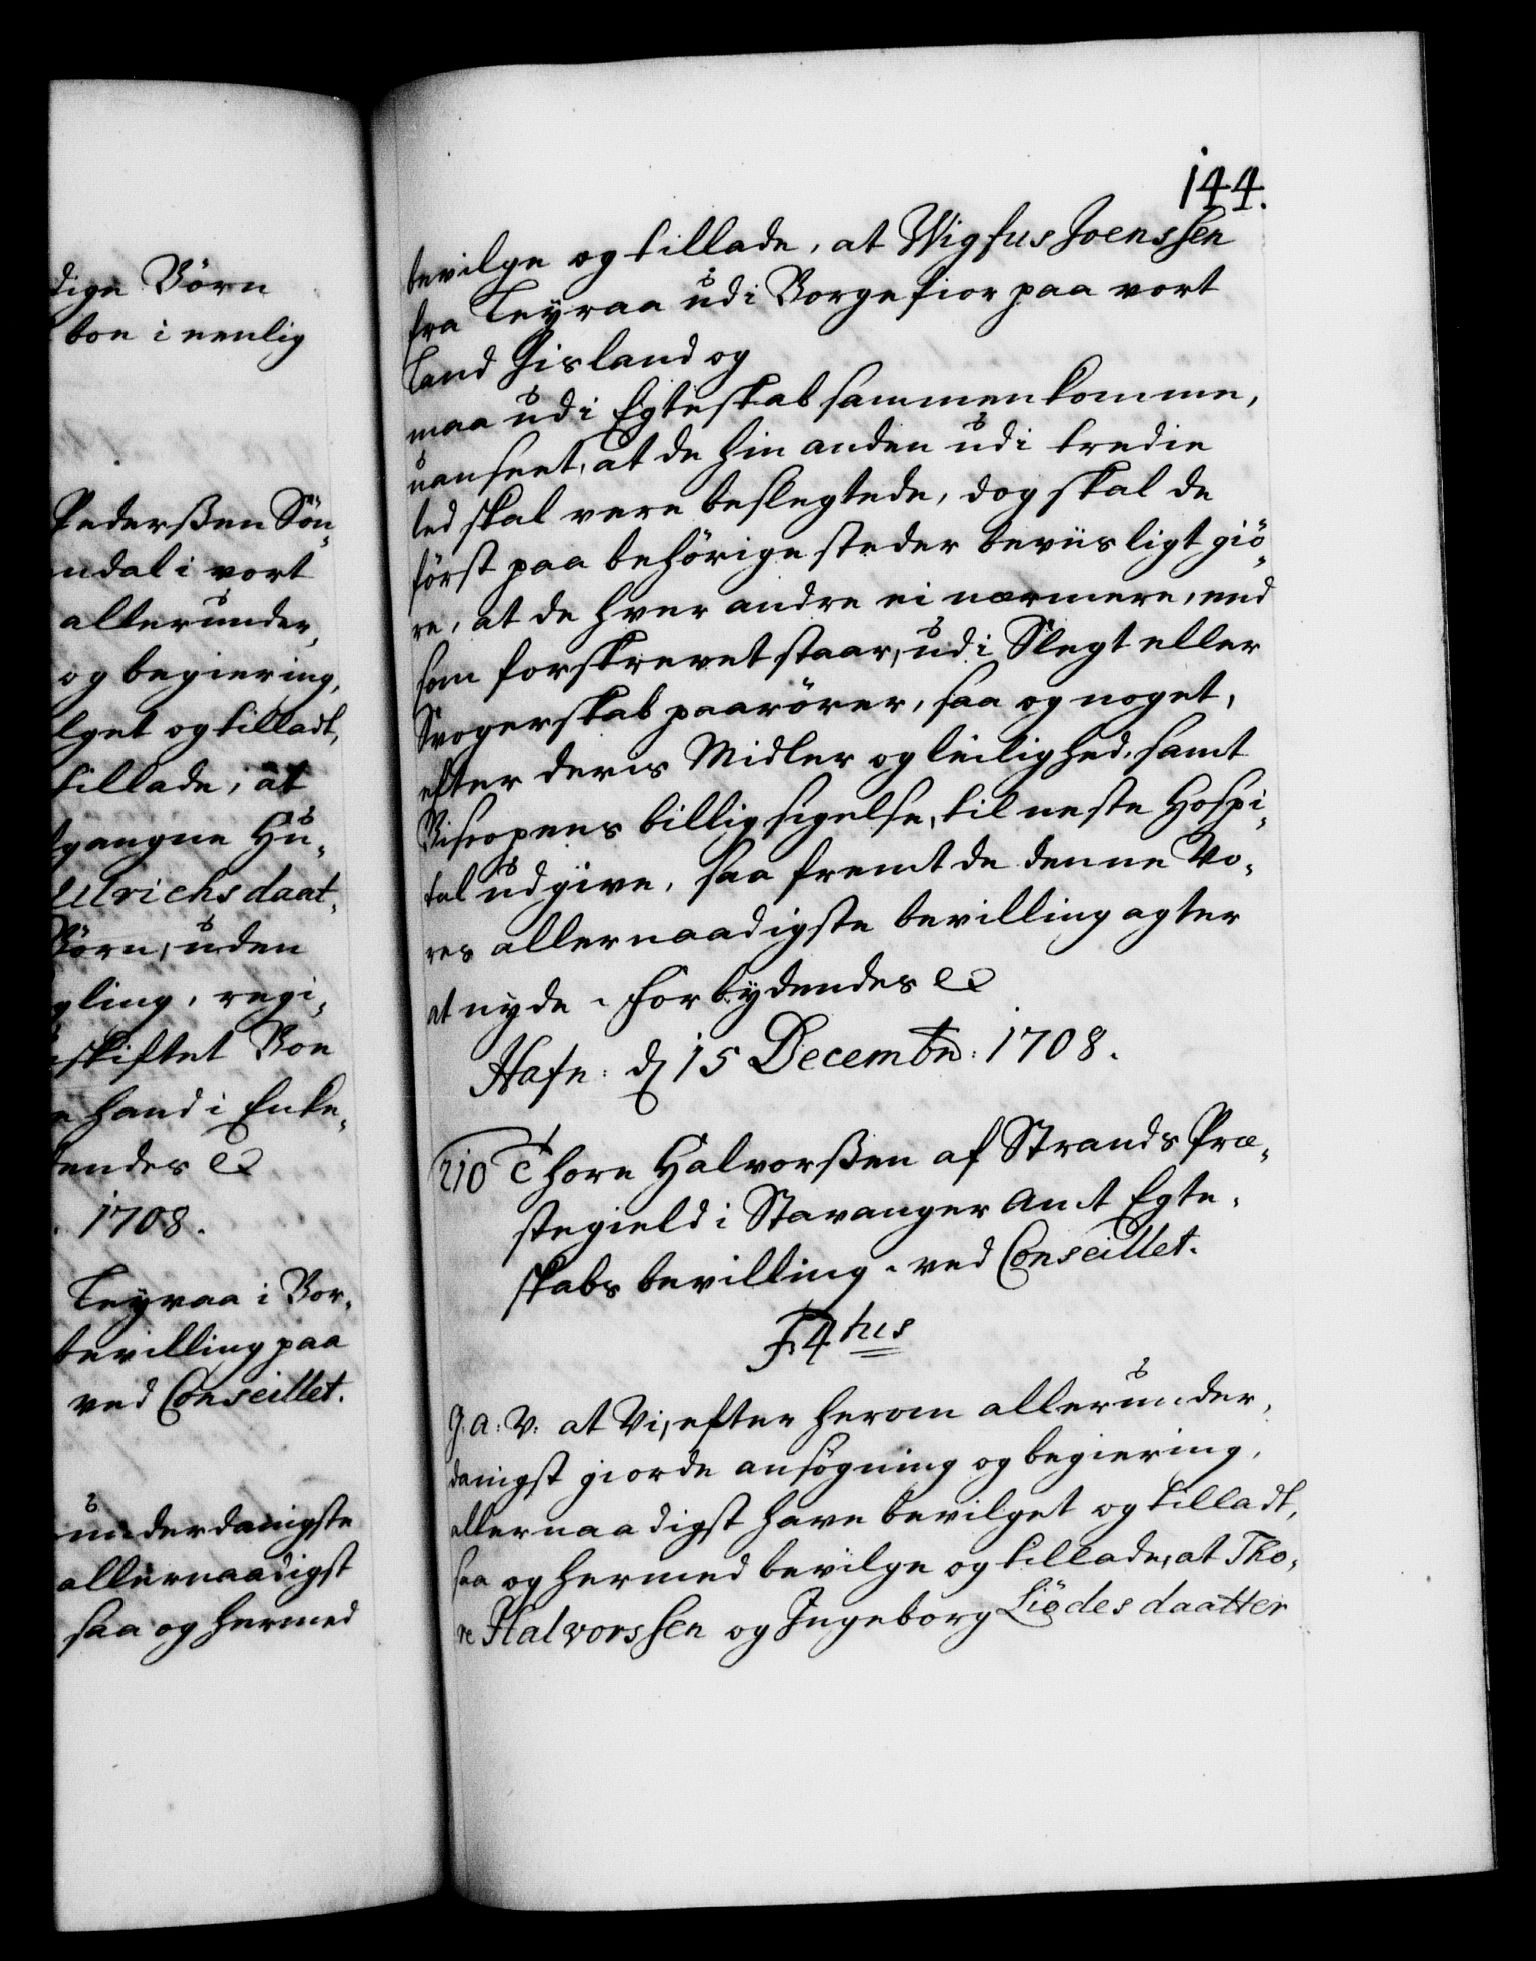 dige Börn
boe i eenlig
Pederßen Sön„
ndal i vort
allerunder„
og begiering,
lget og tilladt,
tillade, at
gangne Hu„
Ulrichsdaat„
Börn, uden
gling, regi„
skiftet Boe
hand i Enke„
endes &
1708.
Leyraa i Bor„
bevilling paa
ved Conseillet.
underdanigste
allernaadigst
saa og hermed
144.
bevilge og tillade, at Wigfus Joenssen
fra Leyraa udi Borgefior paa vort
Land Jisland og
maa udi Egteskab sammenkomme,
uanseet, at de hin anden udi tredie
led skal vere beslegtede, dog skal de
först paa behörige steder beviisligt giö„
re, at de hver andre ei nærmere, end
som forskrevet staar, udi Slegt eller
Svogerskab paarörer, saa og noget,
efter deres Midler og leilighed, samt
Biscopens billigsigelse, til neste Hospi„
tal udgive, saa fremt de denne Vo„
res allernaadigste bevilling agter
at nyde. Forbydendes &
Hafn: d 15 Decembr: 1708.
210 Thore Halvorßen af Strands Præ„
stegield i Stavanger Amt Egte„
skabs bevilling. ved Conseillet.
F4tus
G. A: V: at Vi, efter herom allerunder„
danigst giorde ansögning og begiering,
allernaadigst have bevilget og tilladt,
saa og hermed bevilge og tillade, at Tho„
re Halvorssen og Ingeborg Liödes daatter